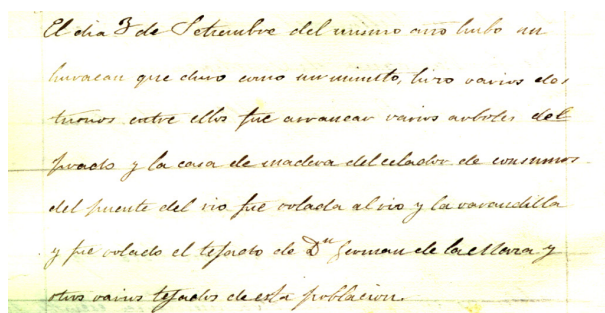 El dia 3 de Setiembre del mismo año hubo un
huracan que duro como un minuto, hizo varios des
trozos entre ellos fue arrancar varios arboles del
prado y la casa de madera del celador de consumos
del puente del rio fue volada al rio y la varandilla
y fue volado el tejado de Dn German de la Mora y
otros varios tejados de esta poblacion.